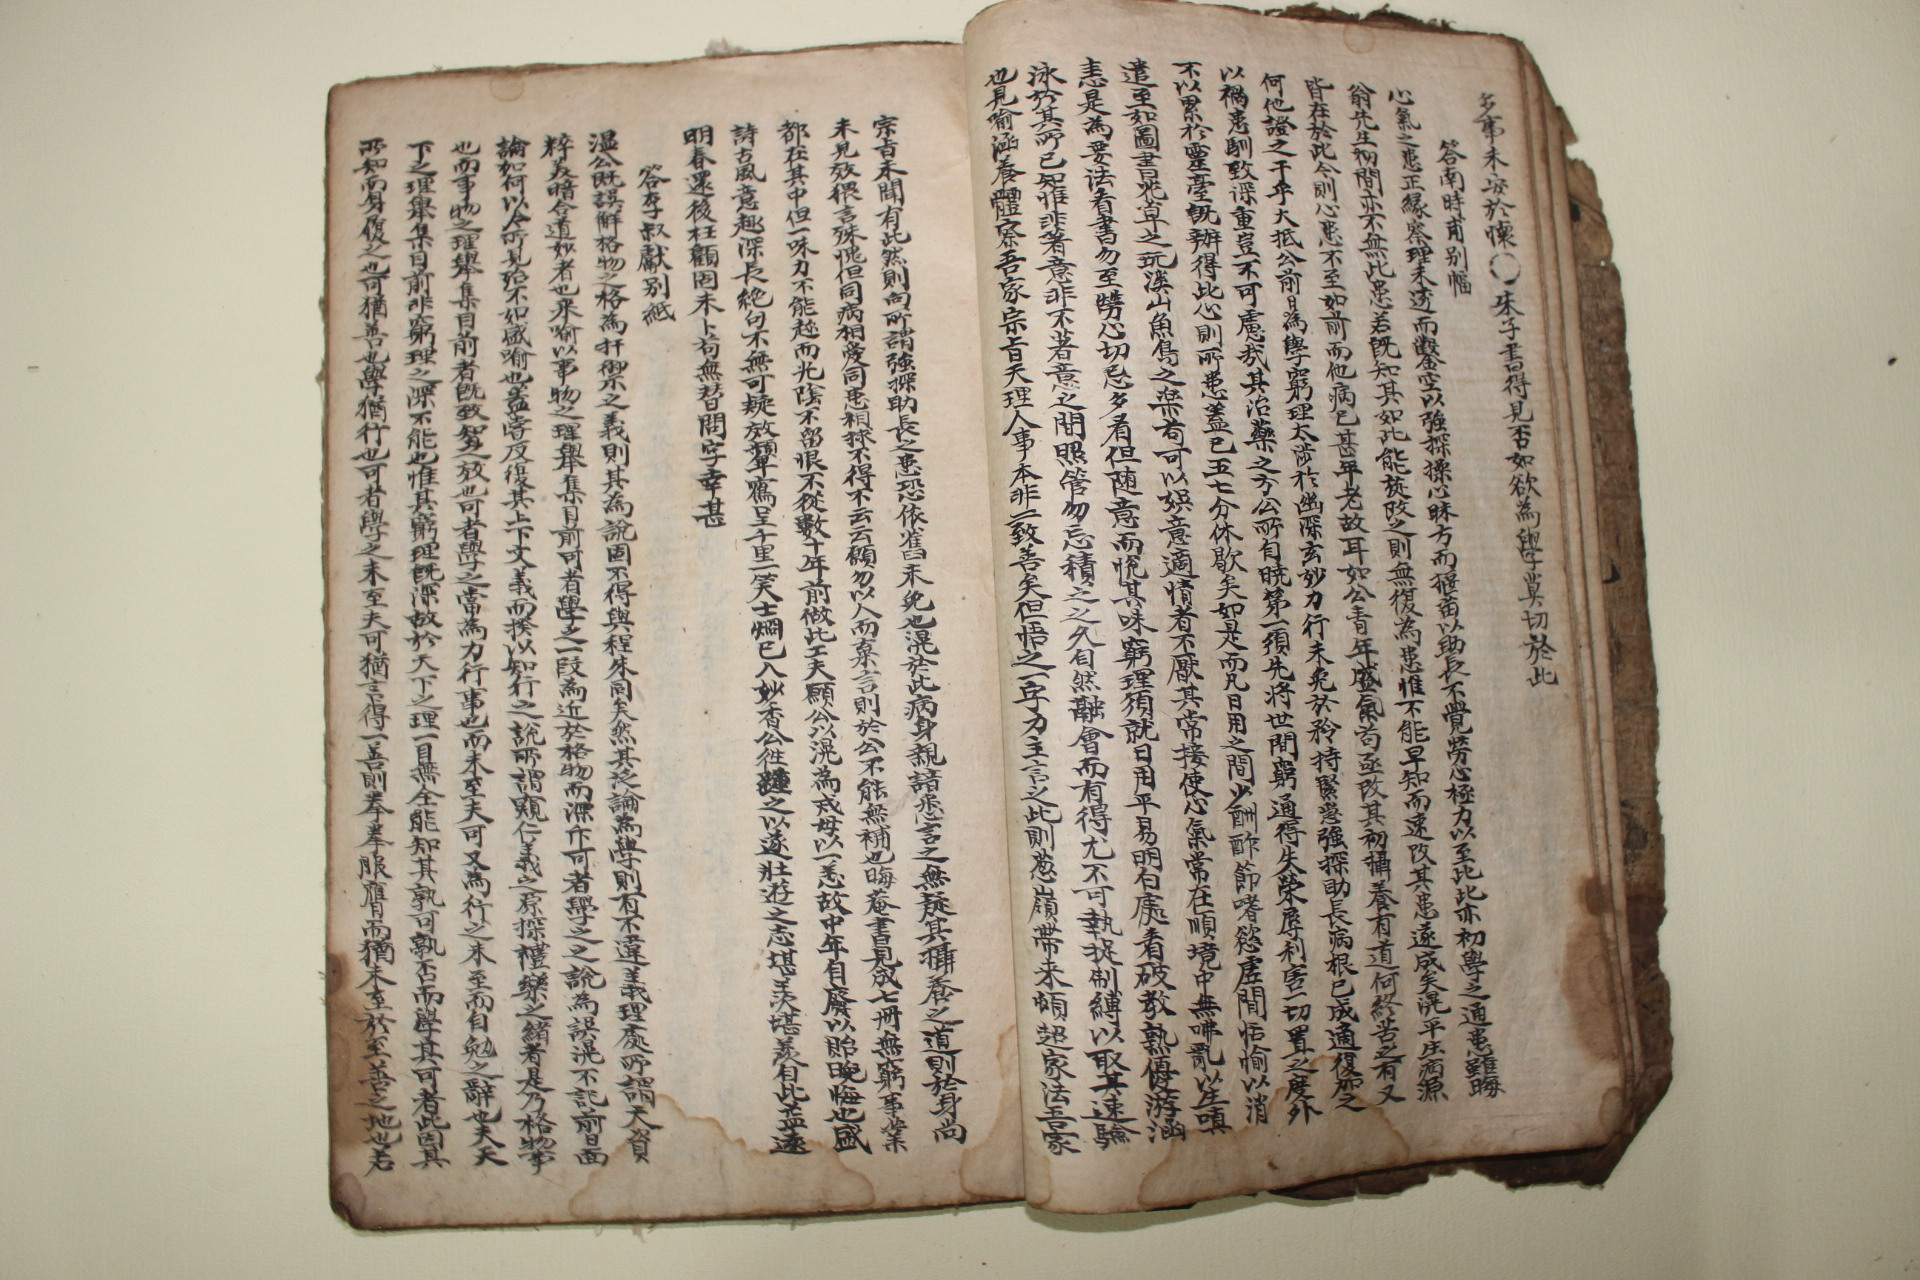 多事未安於懷○朱子書得見否如欲為學莫切於此
答南時甫別幅
心氣之患正緣察理未透而鑿空以強探操心昧方而揠苗以助長不覺勞心極力以至此此亦初學之通患雖晦
翁先生初間亦不無此患若既知其如此能旋改之則無復為患惟不能早知而速改其患遂成矣滉平生病源
皆在於此今則心患不至如前而他病已甚年老故耳如公青年盛氣苟亟改其初攝養有道何終苦之有又
何他證之干乎大抵公前日為學窮理太涉於幽深玄妙力行未免於矜持緊急強探助長病根已成適復加之
以禍患馴致深重豈不可慮哉其治藥之方公所自曉第一須先將世間窮通得失榮辱利害一切置之度外
不以累於靈臺既辦得此心則所患蓋已五七分休歇矣如是而凡日用之間少酬酢節嗜慾虛閒恬愉以消
遣至如圖書花草之玩溪山魚鳥之樂苟可以娛意適情者不厭其常接使心氣常在順境中無咈亂以生嗔
恚是為要法看書勿至勞心切忌多看但隨意而悅其味窮理須就日用平易明白處看破教熟優游涵
泳於其所已知惟非著意非不著意之間照管勿忘積之之久自然融會而有得尤不可執捉制縛以取其速驗
也見喻涵養體察吾家宗旨天理人事本非二致善矣但悟之一字力主言之此則葱嶺帶來頓超家法吾家
宗旨未聞有此然則向所謂強探助長之患恐依舊未免也滉於此病身親諳悉言之無疑其攝養之道則於身尚
未見效猥言殊愧但同病相憂同患相救不得不云云願勿以人而棄言則於公不能無補也晦菴書見成七冊無窮事業
都在其中但一味力不能趁而光陰不留恨不從數十年前做此工夫願公以滉為戒毋以一恙故中年自廢以貽晚悔也盛
詩古風意趣深長絕句不無可疑放顰寫呈千里一笑士烱已入妙香公徃踵之以遂壯遊之志堪羨堪羨自此益遠
明春還後枉顧因未卜苟無替問字幸甚
答李叔獻別紙
溫公既誤解格物之格為扞禦之義則其為說固不得與程朱同矣然其泛論為學則有不違義理處所謂天資
粹美暗合道妙者也來喻以事物之理舉集目前可者學之一段為近於格物而深斥可者學之之說為誤滉不記前日面
論如何以今所見殆不如盛喻也蓋嘗反復其上下文義而揆以知行之說所謂窺仁義之原探禮樂之緒者是乃格物事
也而事物之理舉集目前者既致知之效也可者學之當為力行事也而未至夫可又為行之未至而自勉之辭也夫天
下之理舉集目前非窮理之深不能也惟其窮理既深故於天下之理一目無全能知其孰可孰否而學其可者此因其
所知而身履之也可猶善也學猶行也可者學之未至夫可猶言得一善則拳拳服膺而猶未至於至善之地也若